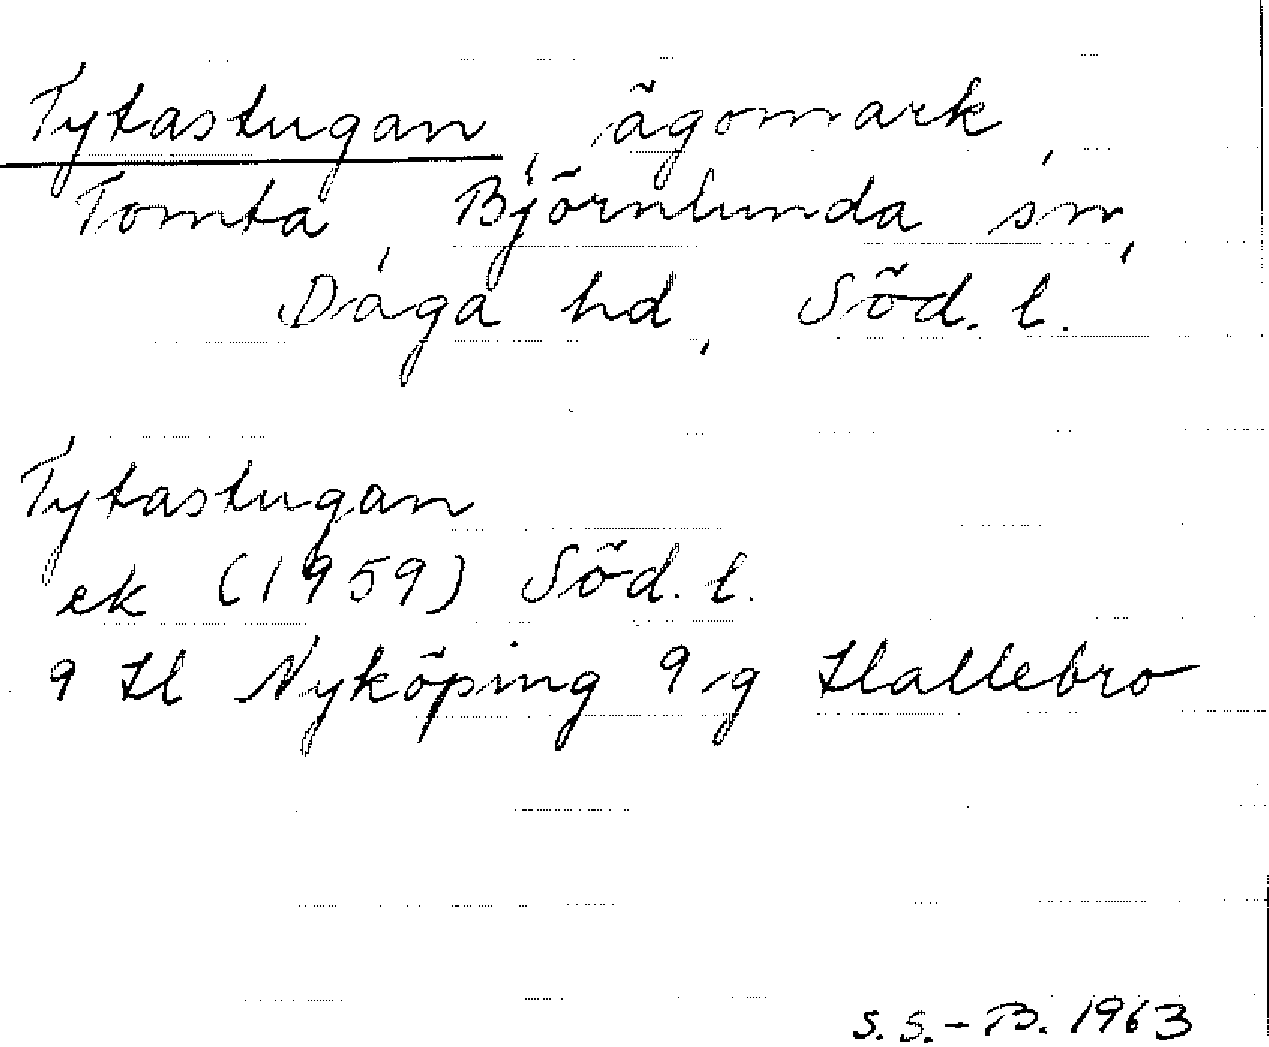 Tytastugan, ägomark,
Tomta, Björnlunda sn,
Daga hd, Söd. l.
Tytastugan
ek (1959) Söd. l.
9 H Nyköping 9 g Hallebro
S. S.-B. 1963